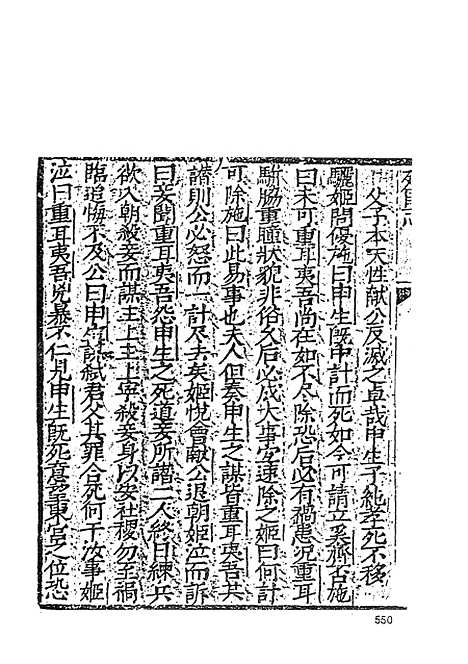 父子本天性献公反滅之卓哉申生子純孝死不移
驪姬問優施曰申生既中計而死如今可請立奚齊否施
曰未可重耳夷吾尚在如不尽除恐后必有禍患况重耳
駢脇重瞳狀貌非俗久后必成大事宜速除之姬曰何計
可除施曰此易事也夫人但奏申生之謀皆重耳夷吾共
議則公必怒而一計及去矣姬悅會献公退朝姬泣而訴
曰妾聞重耳夷吾怨申生之死道妾所譖二人終日練兵
欲入朝殺妾而謀主上主上寧殺妾身以安社稷勿至禍
臨追悔不及公曰申生弒君父其罪合死何干汝事姬
泣曰重耳夷吾兇暴不仁見申生既死意望東宮之位恐
550